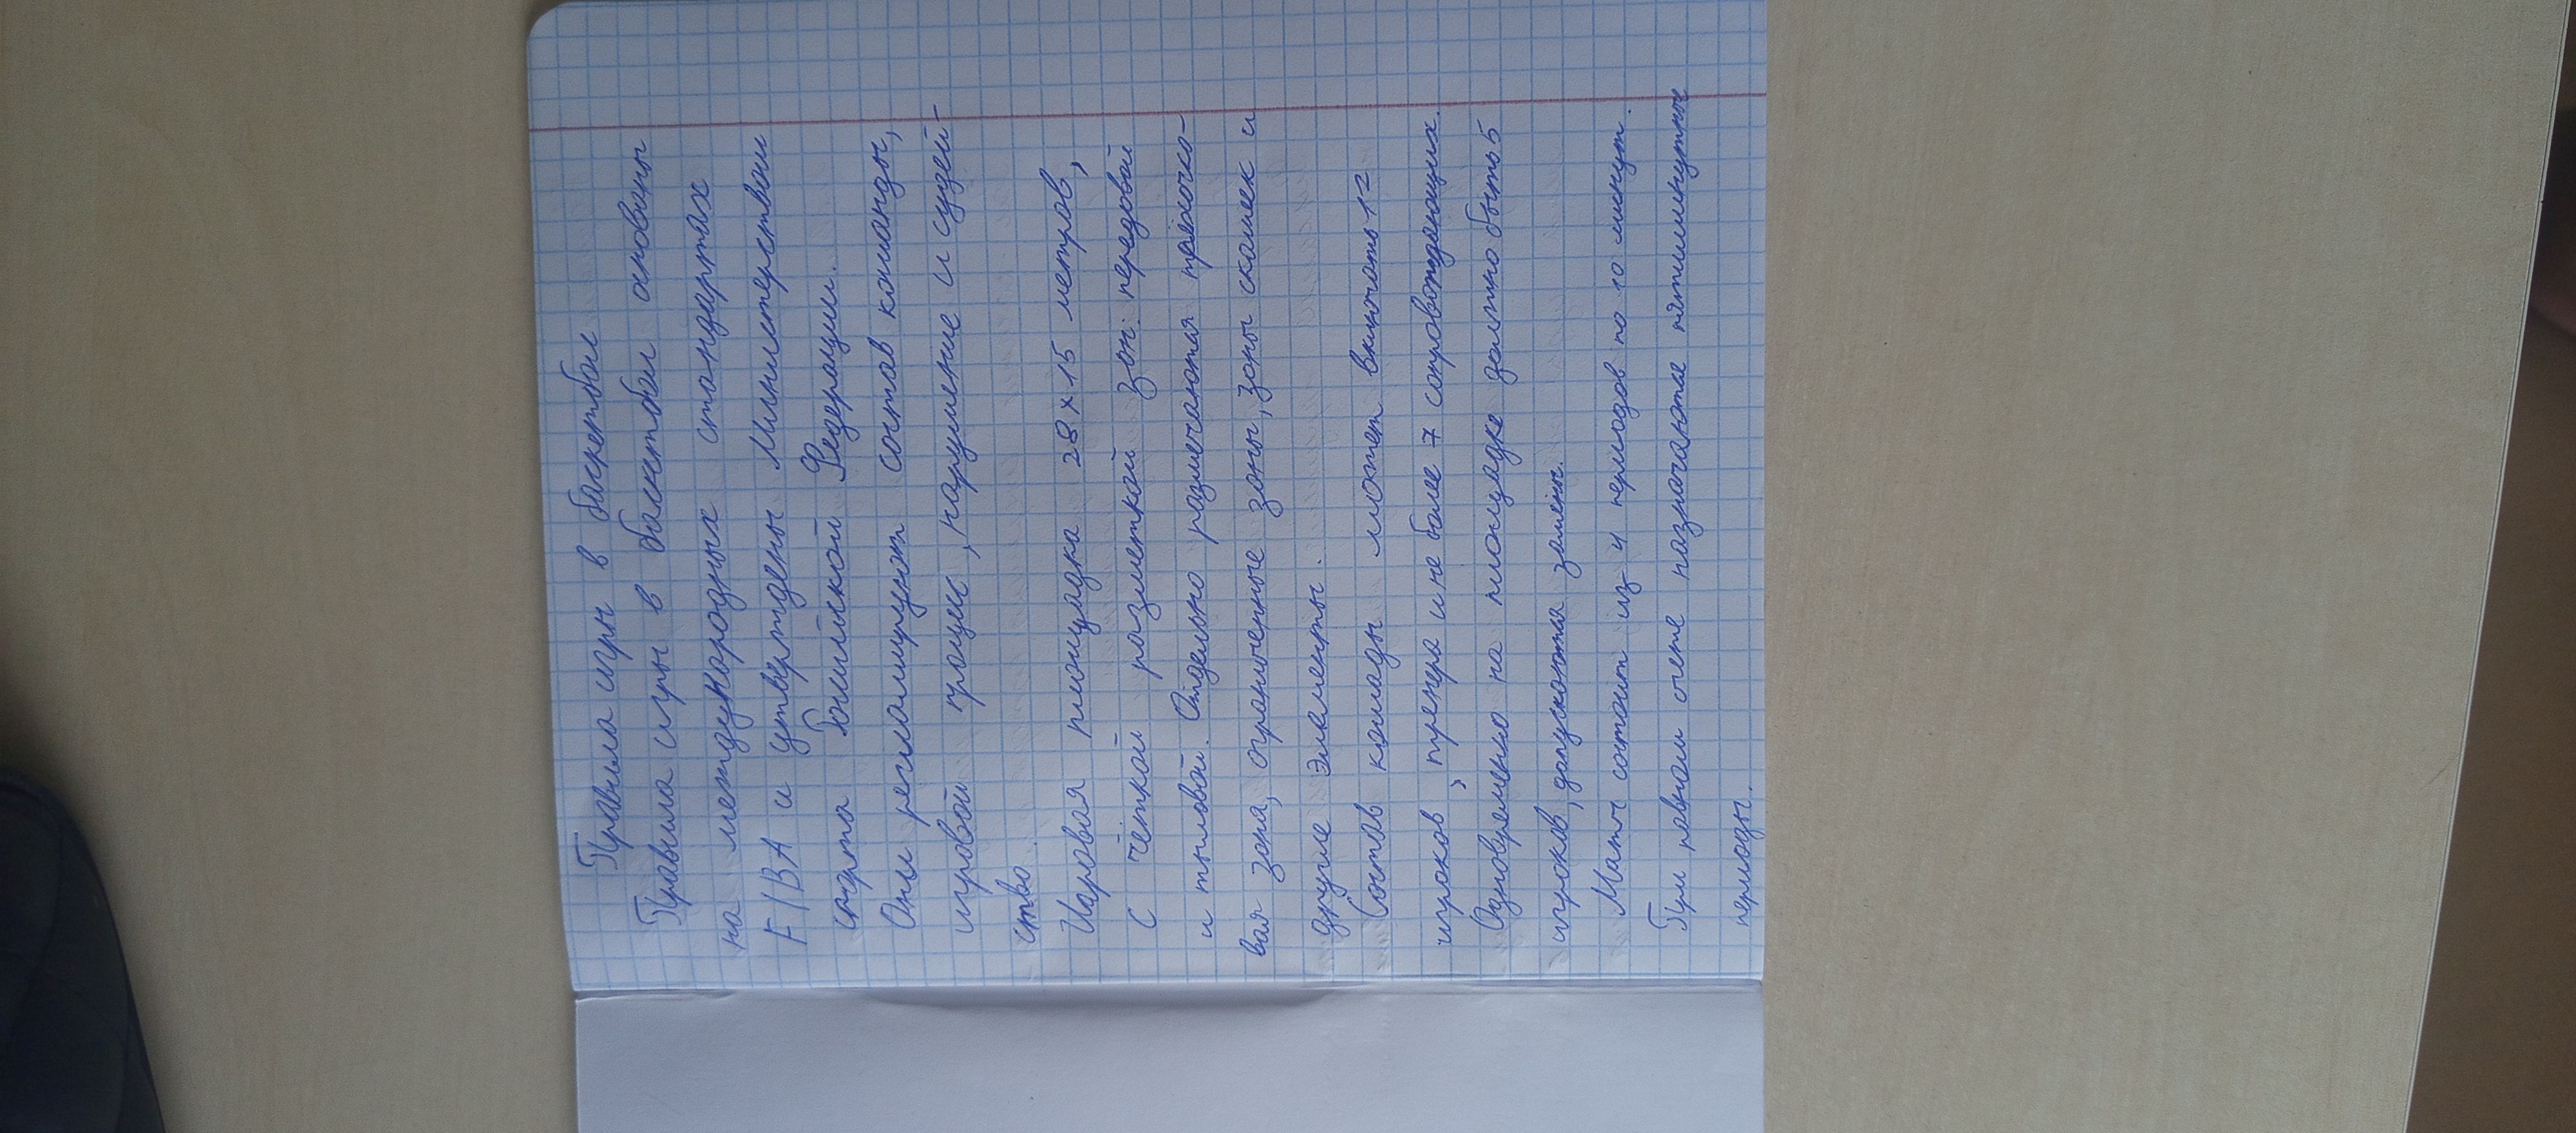 Правила игры в баскетбол
Правила игры в баскетбол основаны
на международных стандартах
FIBA и утверждены Министерством
спорта Российской Федерации.
Они регламинируют состав команды,
игровой процесс, нарушение и судей-
ство.
Игровая площадка 28х15 метров,
с чёткой разметкой зон: передовой
и тыловой. Отдельно размечаются трёхочко-
вая зона, ограниченные зоны, зоны скамеек и
другие элементы.
Состав команды может включать 12
игроков, тренера и не более 7 сопровождающих.
Одновременно на площадке должно быть 5
игроков, допускаются замены.
Матч состоит из 4 периодов по 10 минут.
При равном счете назначаются пятиминутные
периоды.